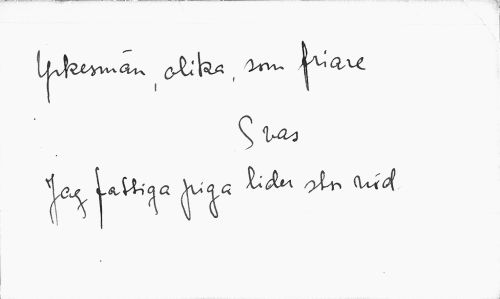 Yrkesmän, olika, som friare
Svas
Jag fattiga piga lider stor nöd